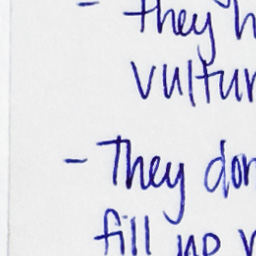 - They h
vultur
- They don
fill up